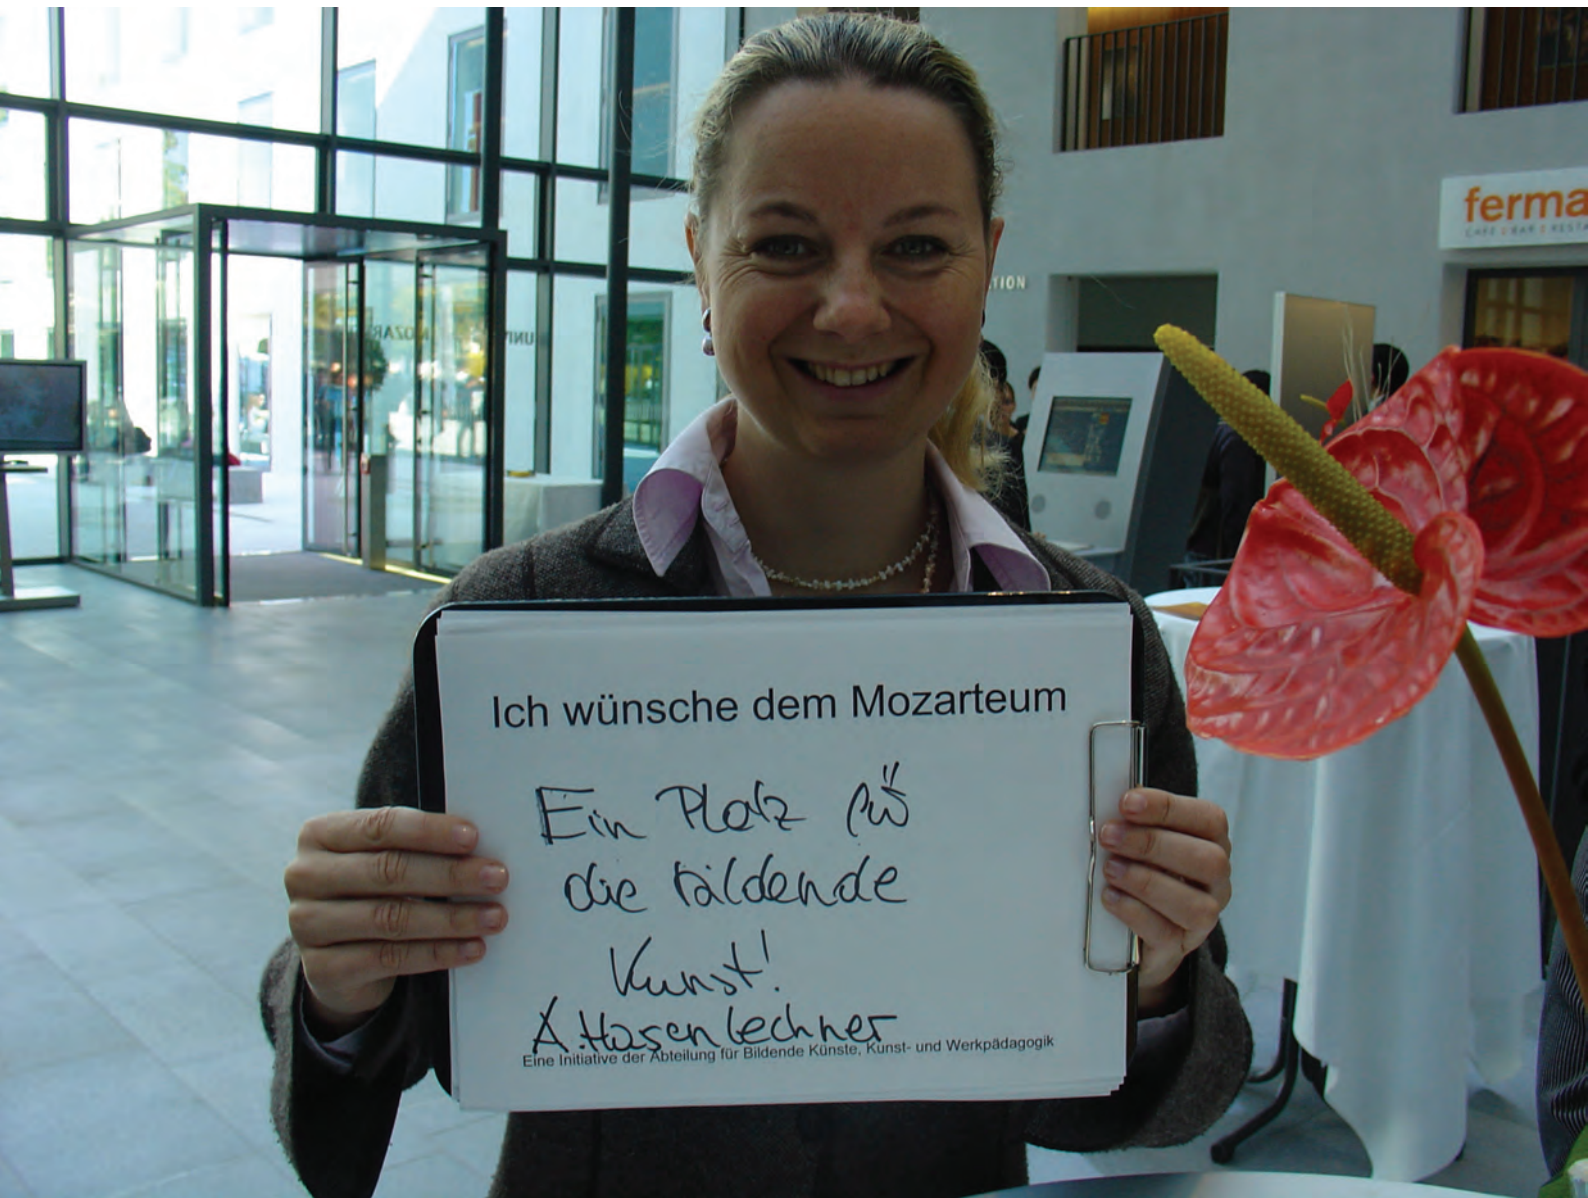 ferma
CAFÉ BAR RESTA
TION
UNIV MOZAR
Ich wünsche dem Mozarteum
Ein Platz für
die bildende
Kunst!
A. Hasenlechner
Eine Initiative der Abteilung für Bildende Künste, Kunst- und Werkpädagogik